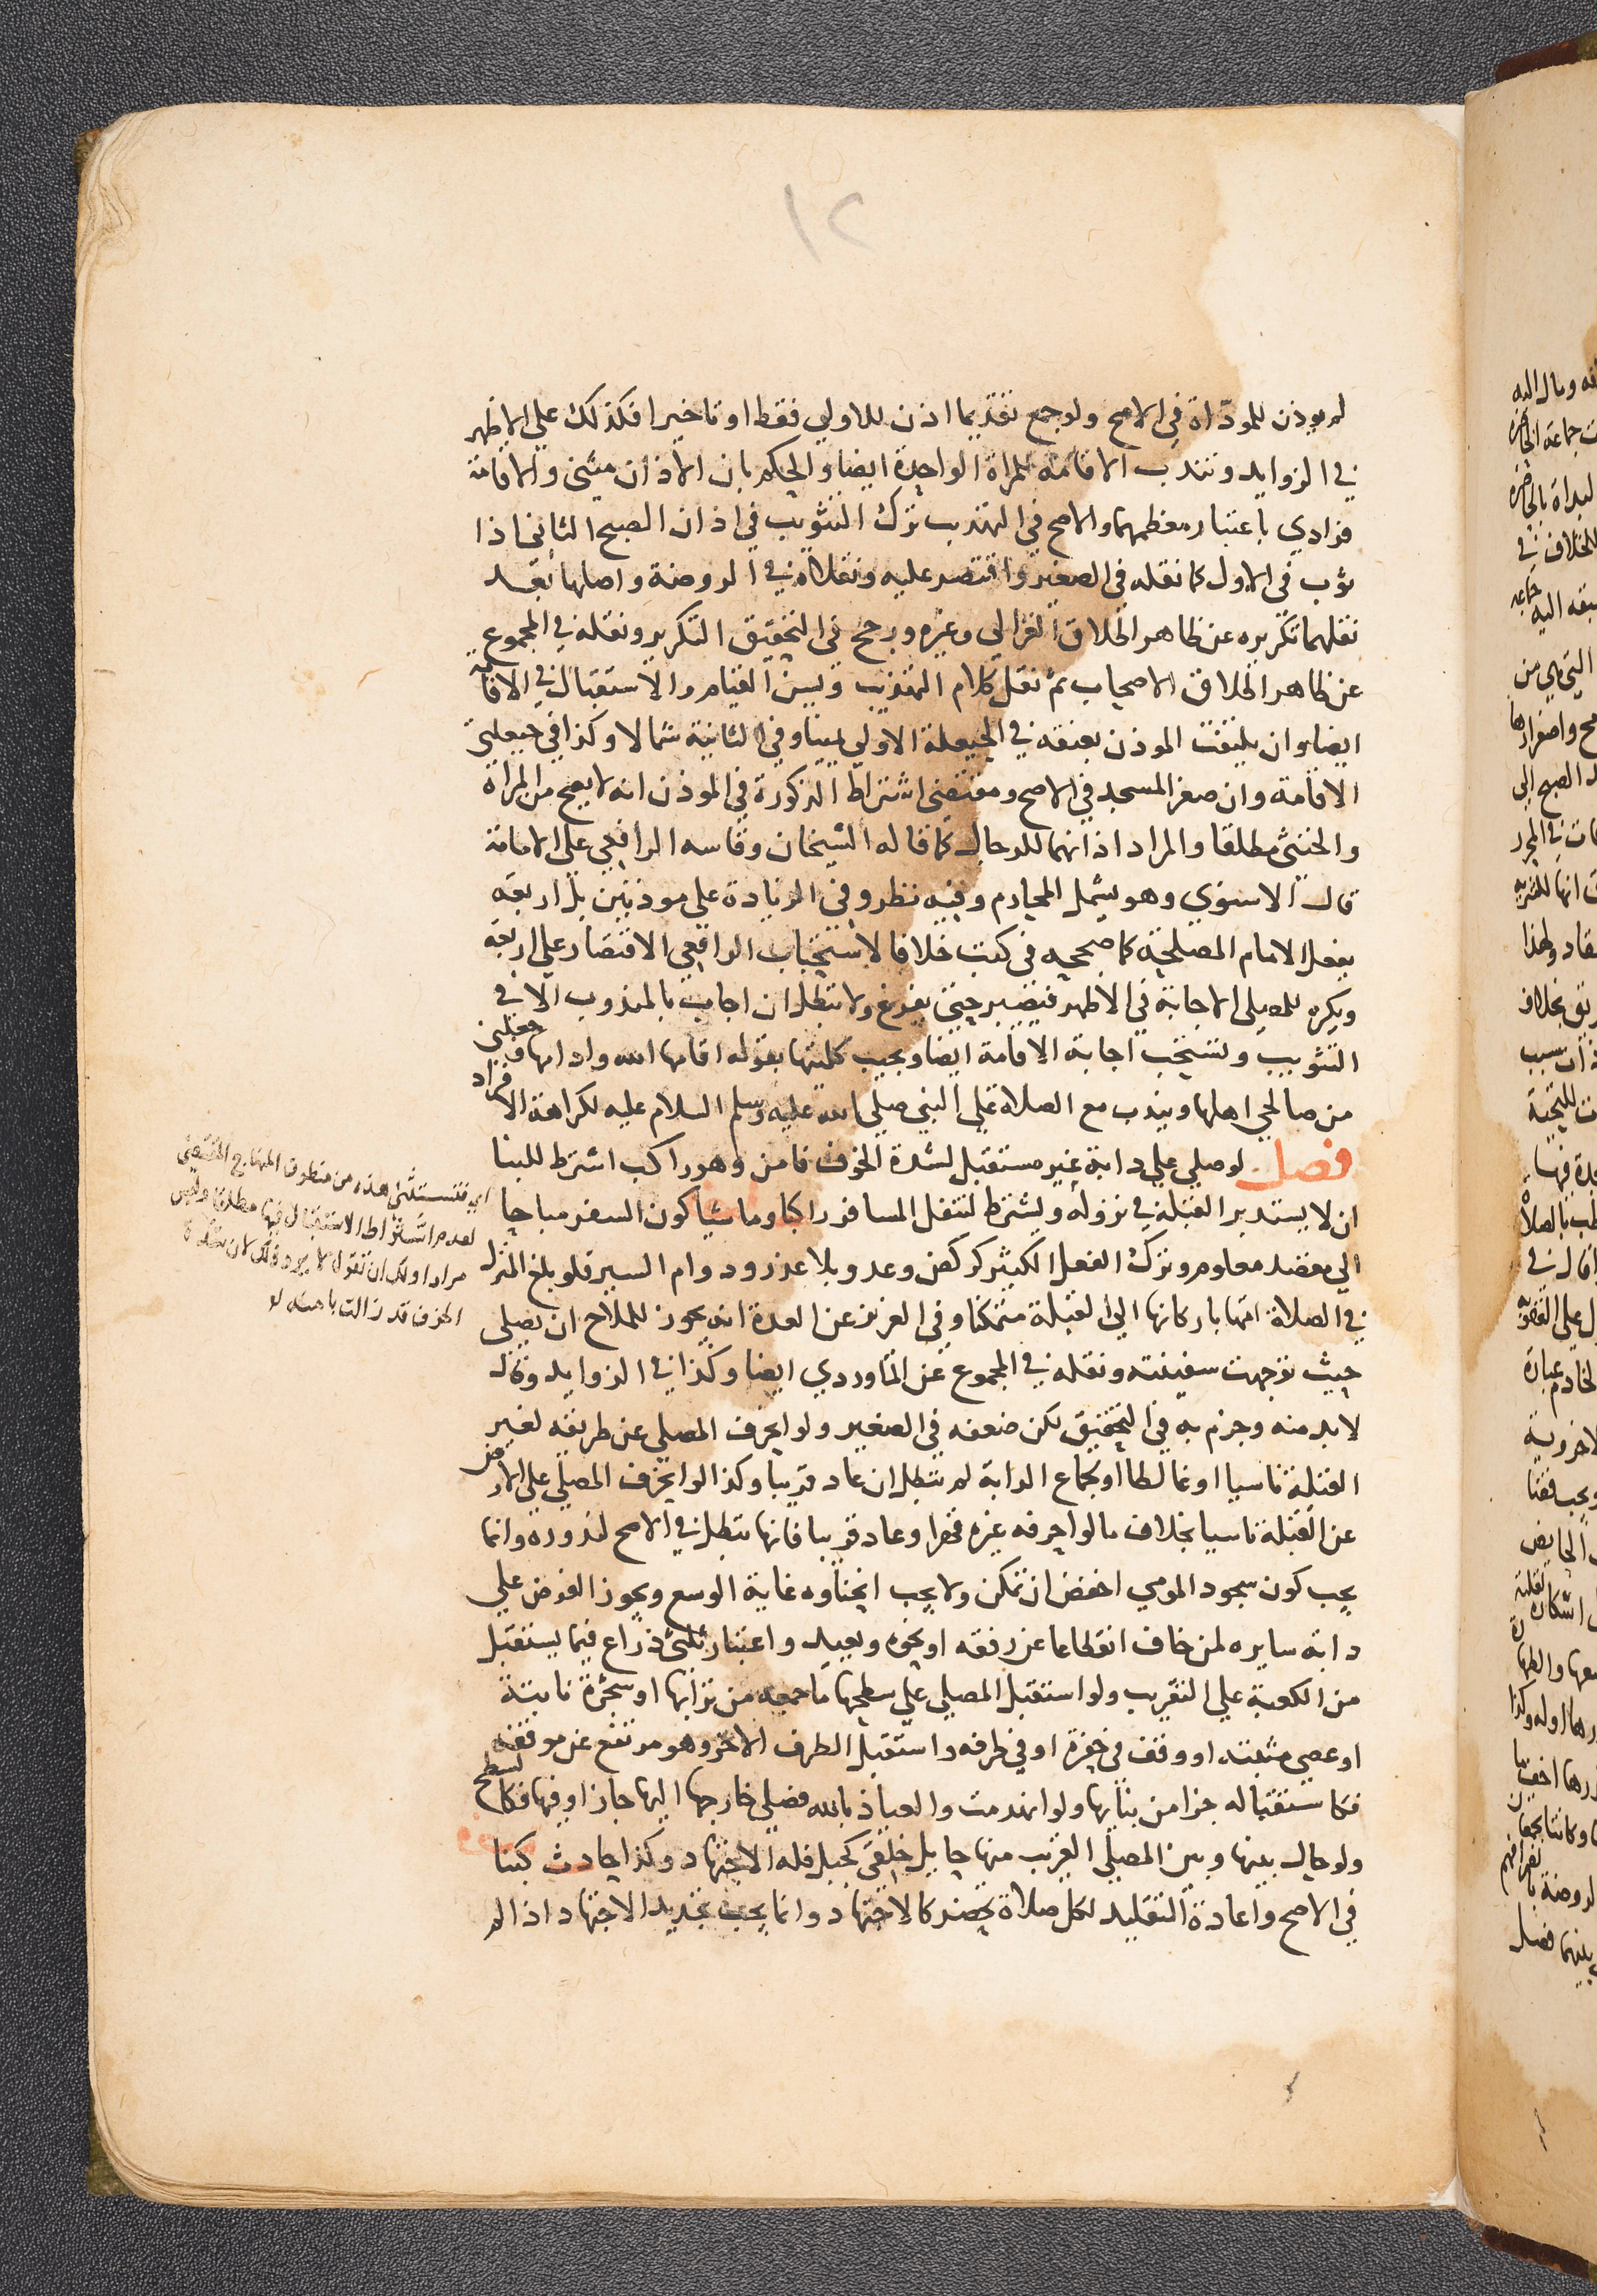 ١٢
لم يوذن للموداة في الاصح ولو جمع تقديما اذن للاولي فقط او تاخيرا فكذلك علي الاظهر
في الزوايد وتندب الاقامة للمراة الواحدة ايضا والحكم بان الاذان مثني والاقامة
فرادي باعتبار معظمهما والاصح في التهذيب ترك التثويب في اذان الصبح الثاني اذا
ثوب في الاول كما نقله في الصغير واقتصر عليه ونقلاه في الروضة واصلها بعد
نقلهما تكريره عن ظاهر اطلاق الغزالي وغيره ورجح في التحقيق التكرير ونقله في المجموع
عن ظاهر اطلاق الاصحاب ثم نقل كلام التهذيب ويسن القيام والاستقبال في الاقامة
ايضا وان يلتفت الموذن بعنقه في الحيعلة الاولي يمينا وفي الثانية شمالا وكذا في حيعلتي
الاقامة وان صغر المسجد في الاصح ومقتضي اشتراط الذكورة في الموذن انه لا يصح من المراة
والخنثي مطلقا والمراد اذانهما للرجال كما قاله الشيخان وقاسه الرافعي علي الامامة
قال الاسنوي وهو يشمل المحارم وفيه نظر وفي الزيادة علي موذنين بل اربعة
يفعل الامام المصلحة كما صححه في كتب خلافا لاستحباب الرافعي الاقتصار علي اربعة
ويكره للمصلي الاجابة في الاظهر فيصبر حتي يفرغ ولا تبطل ان اجاب بالمندوب الا في
التثويب وتستحب اجابة الاقامة ايضا ويجيب كلمتها بقوله اقامها الله وادامها وجعلني
من صالحي اهلها ويندب مع الصلاة علي النبي صلي الله عليه وسلم السلام عليه لكراهة الافراد
فصل لو صلي علي دابة غير مستقبل لشدة الخوف فامن وهو راكب اشترط للبنا
ان لا يستدبر القبلة في نزوله ويشترط لتنفل المسافر راكبا وماشيا كون السفر مباحا
الي مقصد معلوم وترك الفعل الكثير كركض وعدو بلا عذر ودوام السير فلو بلغ المنزل
في الصلاة اتمها باركانها الي القبلة متمكنا وفي العزيز عن العدة انه يجوز للملاح ان يصلي
حيث توجهت سفينته ونقله في المجموع عن الماوردي ايضا وكذا في الزوايد وقال
لا بد منه وجزم به في التحقيق لكن ضعفه في الصغير ولو انحرف المصلي عن طريقه لغير
القبلة ناسيا او غالطا او بجماح الدابة لم تبطل ان عاد قريبا وكذا لو انحرف المصلي علي الارض
عن القبلة ناسيا بخلاف ما لو احرفه غيره قهرا وعاد قريبا فانها تبطل في الاصح لندوره وانما
يجب كون سجود المومي اخفض ان تمكن ولا يجب انحناوه غاية الوسع ويجوز الفرض علي
دابة سايره لمن خاف انقطاعا عن رفقه او نحوه ويعيد واعتبار ثلثي ذراع فيما يستقبل
من الكعبة علي التقريب ولو استقبل المصلي علي سطحها ما جمعه من ترابها او شجرة نابتة
او عصي مثبتة او وقف في حفرة او في طرفه واستقبل الطرف الاخر وهو مرتفع عن موقفه
فكاستقباله جزا من بنايها ولو انهدمت والعياذ بالله فصلي خارجها اليها جاز او فيها فكالسطح
ولو حال بينها وبين المصلي القريب منها حايل خلقي كجبل فله الاجتهاد وكذا حادث كبنا
في الاصح واعادة التقليد لكل صلاة تحضر كالاجتهاد وانما يجب تجديد الاجتهاد اذا لم
اي فتستثني هذه من منطوق المنهاج المقتضي
لعدم اشتراط الاستقبال فيها مطلقا وليس
مرادا ولك ان تقول لا يرد ذلك لان شدة
الخوف قد زالت بامنه